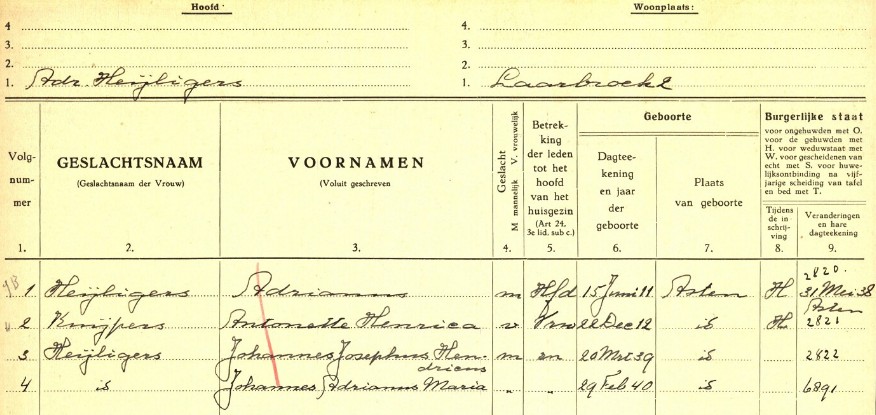 Hoofd: Woonplaats:
4 4.
3. 3.
2. 2.
1. Adr. Heijligers 1. Laarbroek 2
Volg-
num-
mer
GESLACHTSNAAM
(Geslachtsnaam der Vrouw)
VOORNAMEN
(Voluit geschreven
Geslacht
M mannelijk V. vrouwelijk
Betrek-
king
der leden
tot het
hoofd
van het
huisgezin
(Art 24,
3e lid. sub c.)
Geboorte
Dagtee-
kening
en jaar
der
geboorte
Plaats
van geboorte
Burgerlijke staat
voor ongehuwden met O.
voor de gehuwden met
H. voor weduwstaat met
W. voor gescheidenen van
echt met S. voor huwe-
lijksontbinding na vijf-
jarige scheiding van tafel
en bed met T.
Tijdens
de in
schrij-
ving
Veranderingen
en hare
dagteekening
1. 2. 3. 4. 5. 6. 7. 8. 9.
2820.
1 Heijligers Adrianus m Hfd 15 Juni 11 Asten H 31 Mei 38
Asten
2 Knijpers Antonette Henrica v Vrw 22 Dec 12 id H 2821
3 Heijligers Johannes Josephus Hen- m zn 20 Mrt 39 id 2822
dricus
4 id Johannes Adrianus Maria " " 29 Feb 40 id 6891